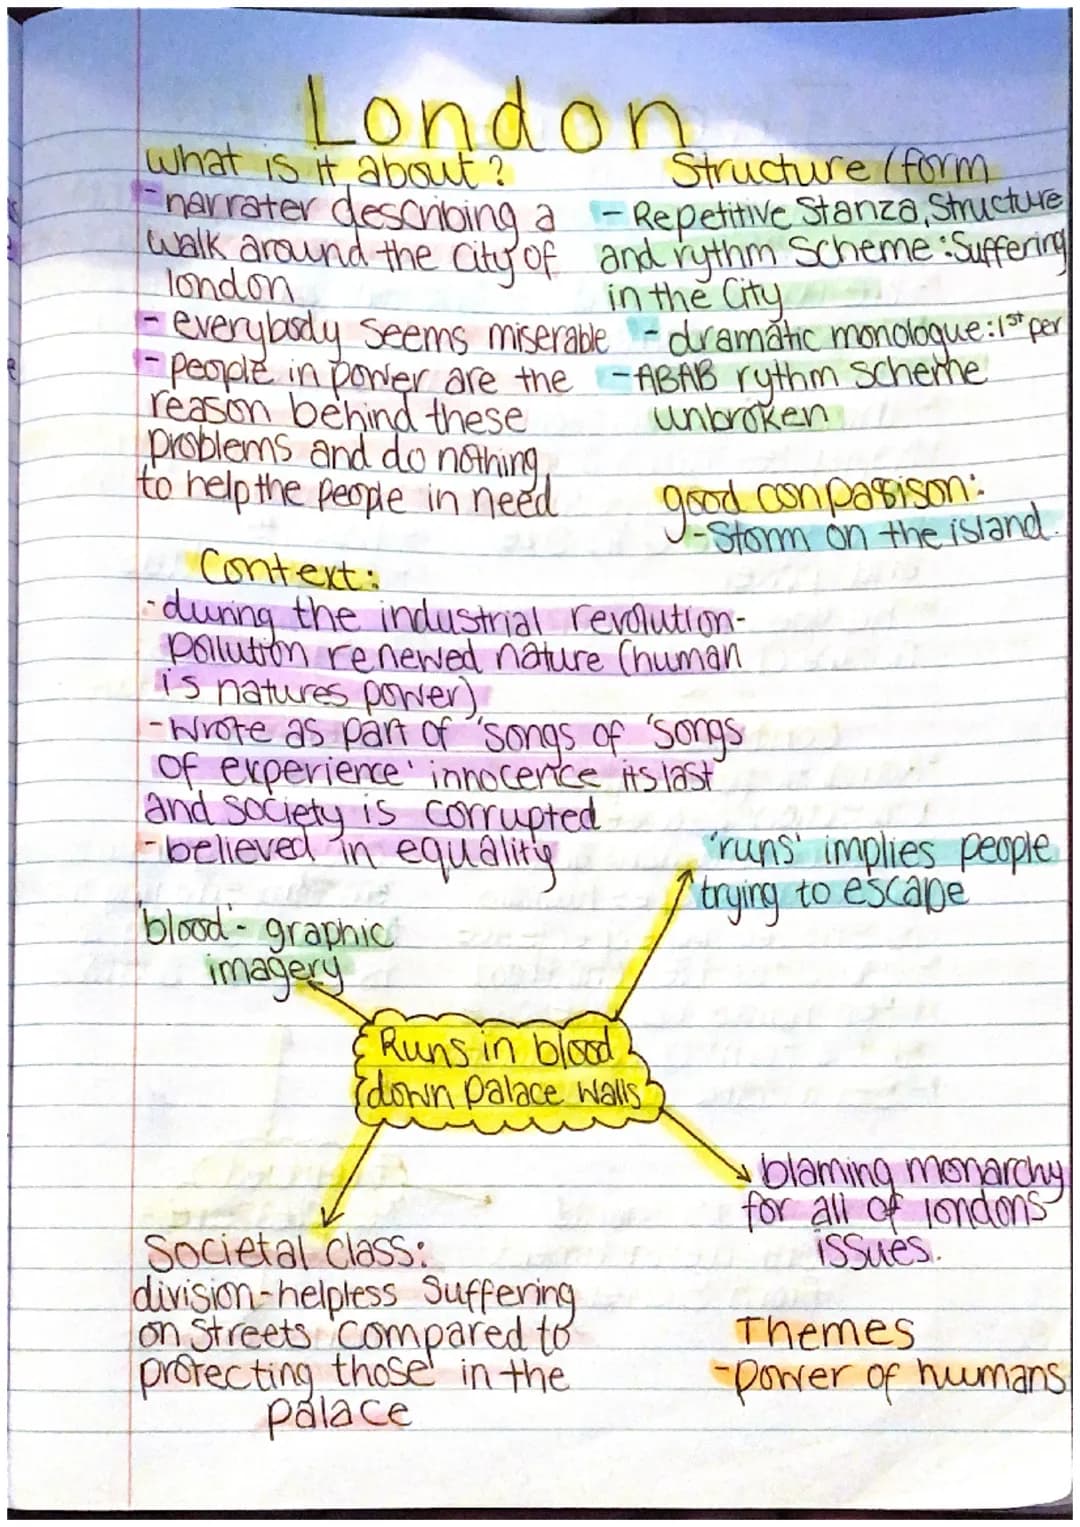 London
what is it about?
- narrater describing a
walk around the city of
london
- everybody seems miserable
- people in power are the
reason behind these
problems and do nothing
to help the people in need
Structure (form
- Repetitive Stanza, Structure
and rythm scheme: Suffering
in the City
- dramatic monologue: 1st per
- ABAB rythm scheme
unbroken
good conparision:
- Storm on the island.
Context:
- during the industrial revolution-
pollution renewed nature (human
is natures power)
- wrote as part of 'songs of 'songs
of experience' innocence its last
and society is corrupted
- believed in equality
'runs' implies people
trying to escape
'blood' - graphic
imagery
Runs in blood
down palace walls
blaming monarchy
for all of londons
issues.
Societal class:
division-helpless suffering
on streets compared to
protecting those in the
palace
Themes
- power of humans